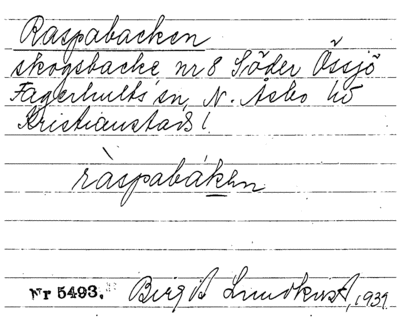 Raspabacken
skogsbacke nr 8 Söder Össjö
Fagerhults sn, N. Åsbo hd
Kristianstads l
ràspabáken
Nr 5493. Birgit Lundkvist, 1939